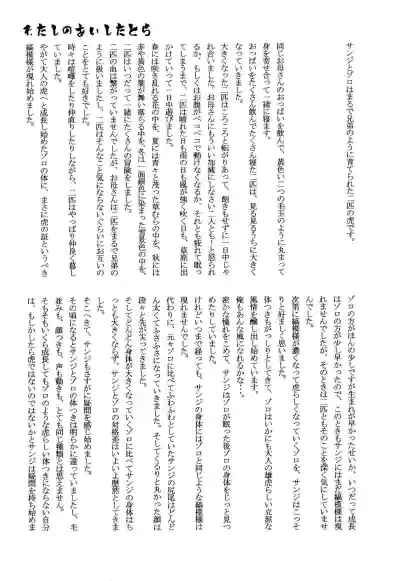 わたしのあいしたとら
サンジとゾロはまるで兄弟のように育てられた二匹の虎です。
同じお母さんのおっぱいを飲んで、黄色い二つの毛玉のように丸まって
身を寄せ合って一緒に寝ます。
おっぱいをたくさん飲んでたくさん寝た二匹は、見る見るうちに大きく
なっていきました。
大きくなった二匹はころころと転がりあって、飽きもせずに一日中じゃ
れ合いました。お母さんにもういい加減にしなさい二人とも！と怒られ
るか、もしくはお腹がペコペコで動けなくなるか、それとも疲れて眠っ
てしまうまで、二匹は晴れた日も雨の日も風が強く吹く日も、草原に出
かけていって一日中遊びました。
春には咲き乱れる花の中を、夏には青々と茂った草むらの中を、秋には
赤や黄色の葉が舞い落ちる中を、冬は一面銀色に染まった雪景色の中を、
二匹はいつだって一緒にたくさんの冒険をしました。
二匹の血は繋がっていませんでしたが、お母さんは二匹をまるで兄弟の
ように扱いましたし、二匹はそんなこと気にならないぐらいにお互いの
ことをとても好きでした。
時々は喧嘩をしたり仲直りしたりしながら、二匹はやっぱり仲良く暮し
ていました。
やがて大人の虎へと成長し始めたゾロの体に、まさに虎の証というべき
縞模様が現れ始めました。
ゾロの方がほんの少しですが生まれが早かったせいか、いつだって成長
はゾロの方が少し早かったので、このときもサンジにはまだ縞模様は現
れませんでしたが、そのときは二匹ともそのことを深く気にしていませ
んでした。
次第に縞模様が濃くなって虎らしくなっていくゾロを、サンジはこっそ
りと好ましく思いました。
体つきもがっしりとしてきて、ゾロはいかにも大人の雄虎らしい立派な
風情を醸し出し始めています。
俺もあんな風になれるかな…。
密かな憧れをこめて、サンジはゾロが眠った後ゾロの身体をじっと見つ
めたりしていました。
けれどいつまで経っても、サンジの身体にはゾロと同じような縞模様は
現れませんでした。
代わりに、元々ゾロに比べてふわふわとしていたサンジの尻尾はどんど
ん太くてふさふさになっていきました。そしてくるりと丸かった顔は
段々と先が尖ってきました。
そしてどんどん身体が大きくなっていくゾロに比べてサンジの身体はち
っとも大きくならず、サンジとゾロの体格差はいよいよ歴然としてきま
した。
そこへきて、サンジもさすがに疑問を感じ始めました。
その頃になるとサンジとゾロの体つきは明らかに違っていましたし、毛
並みも、顔つきも、声も動きも、とても同じ種類とは思えません。
そもそもいくら成長してもゾロのような虎らしい体つきにならない自分
は、もしかしたら虎ではないのではないかとサンジは疑問を持ち始めま